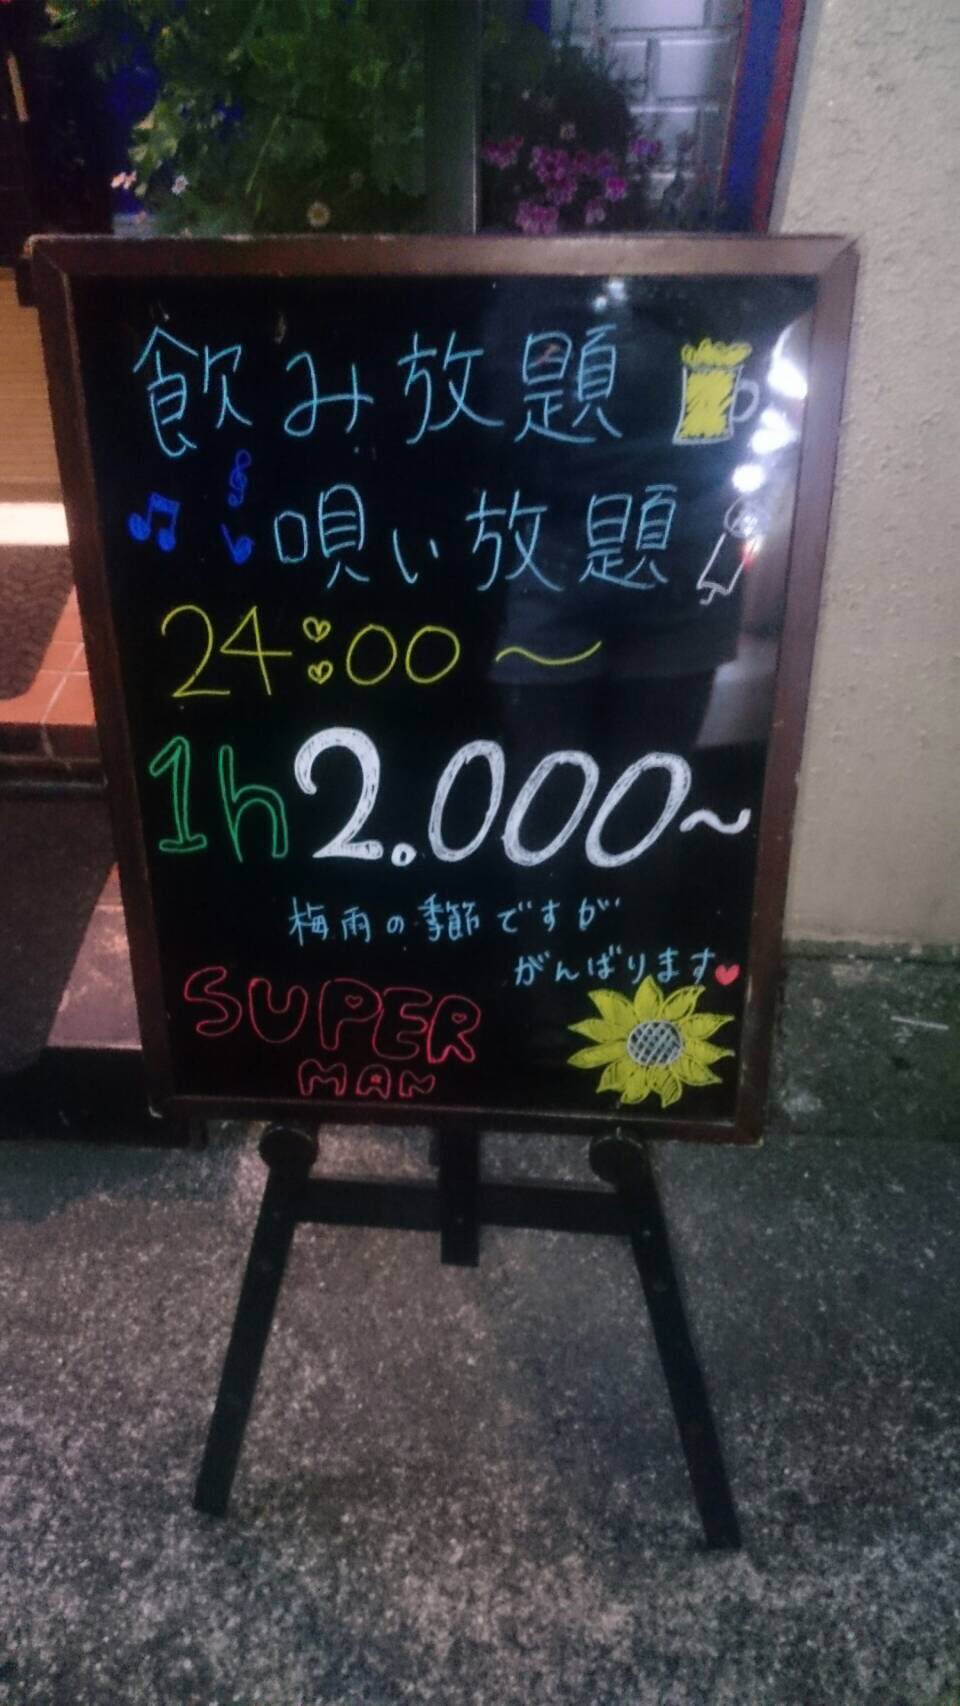 飲み放題
唄い放題
24:00～
1h2.000～
梅雨の季節ですが
がんばります
SUPER
MAN